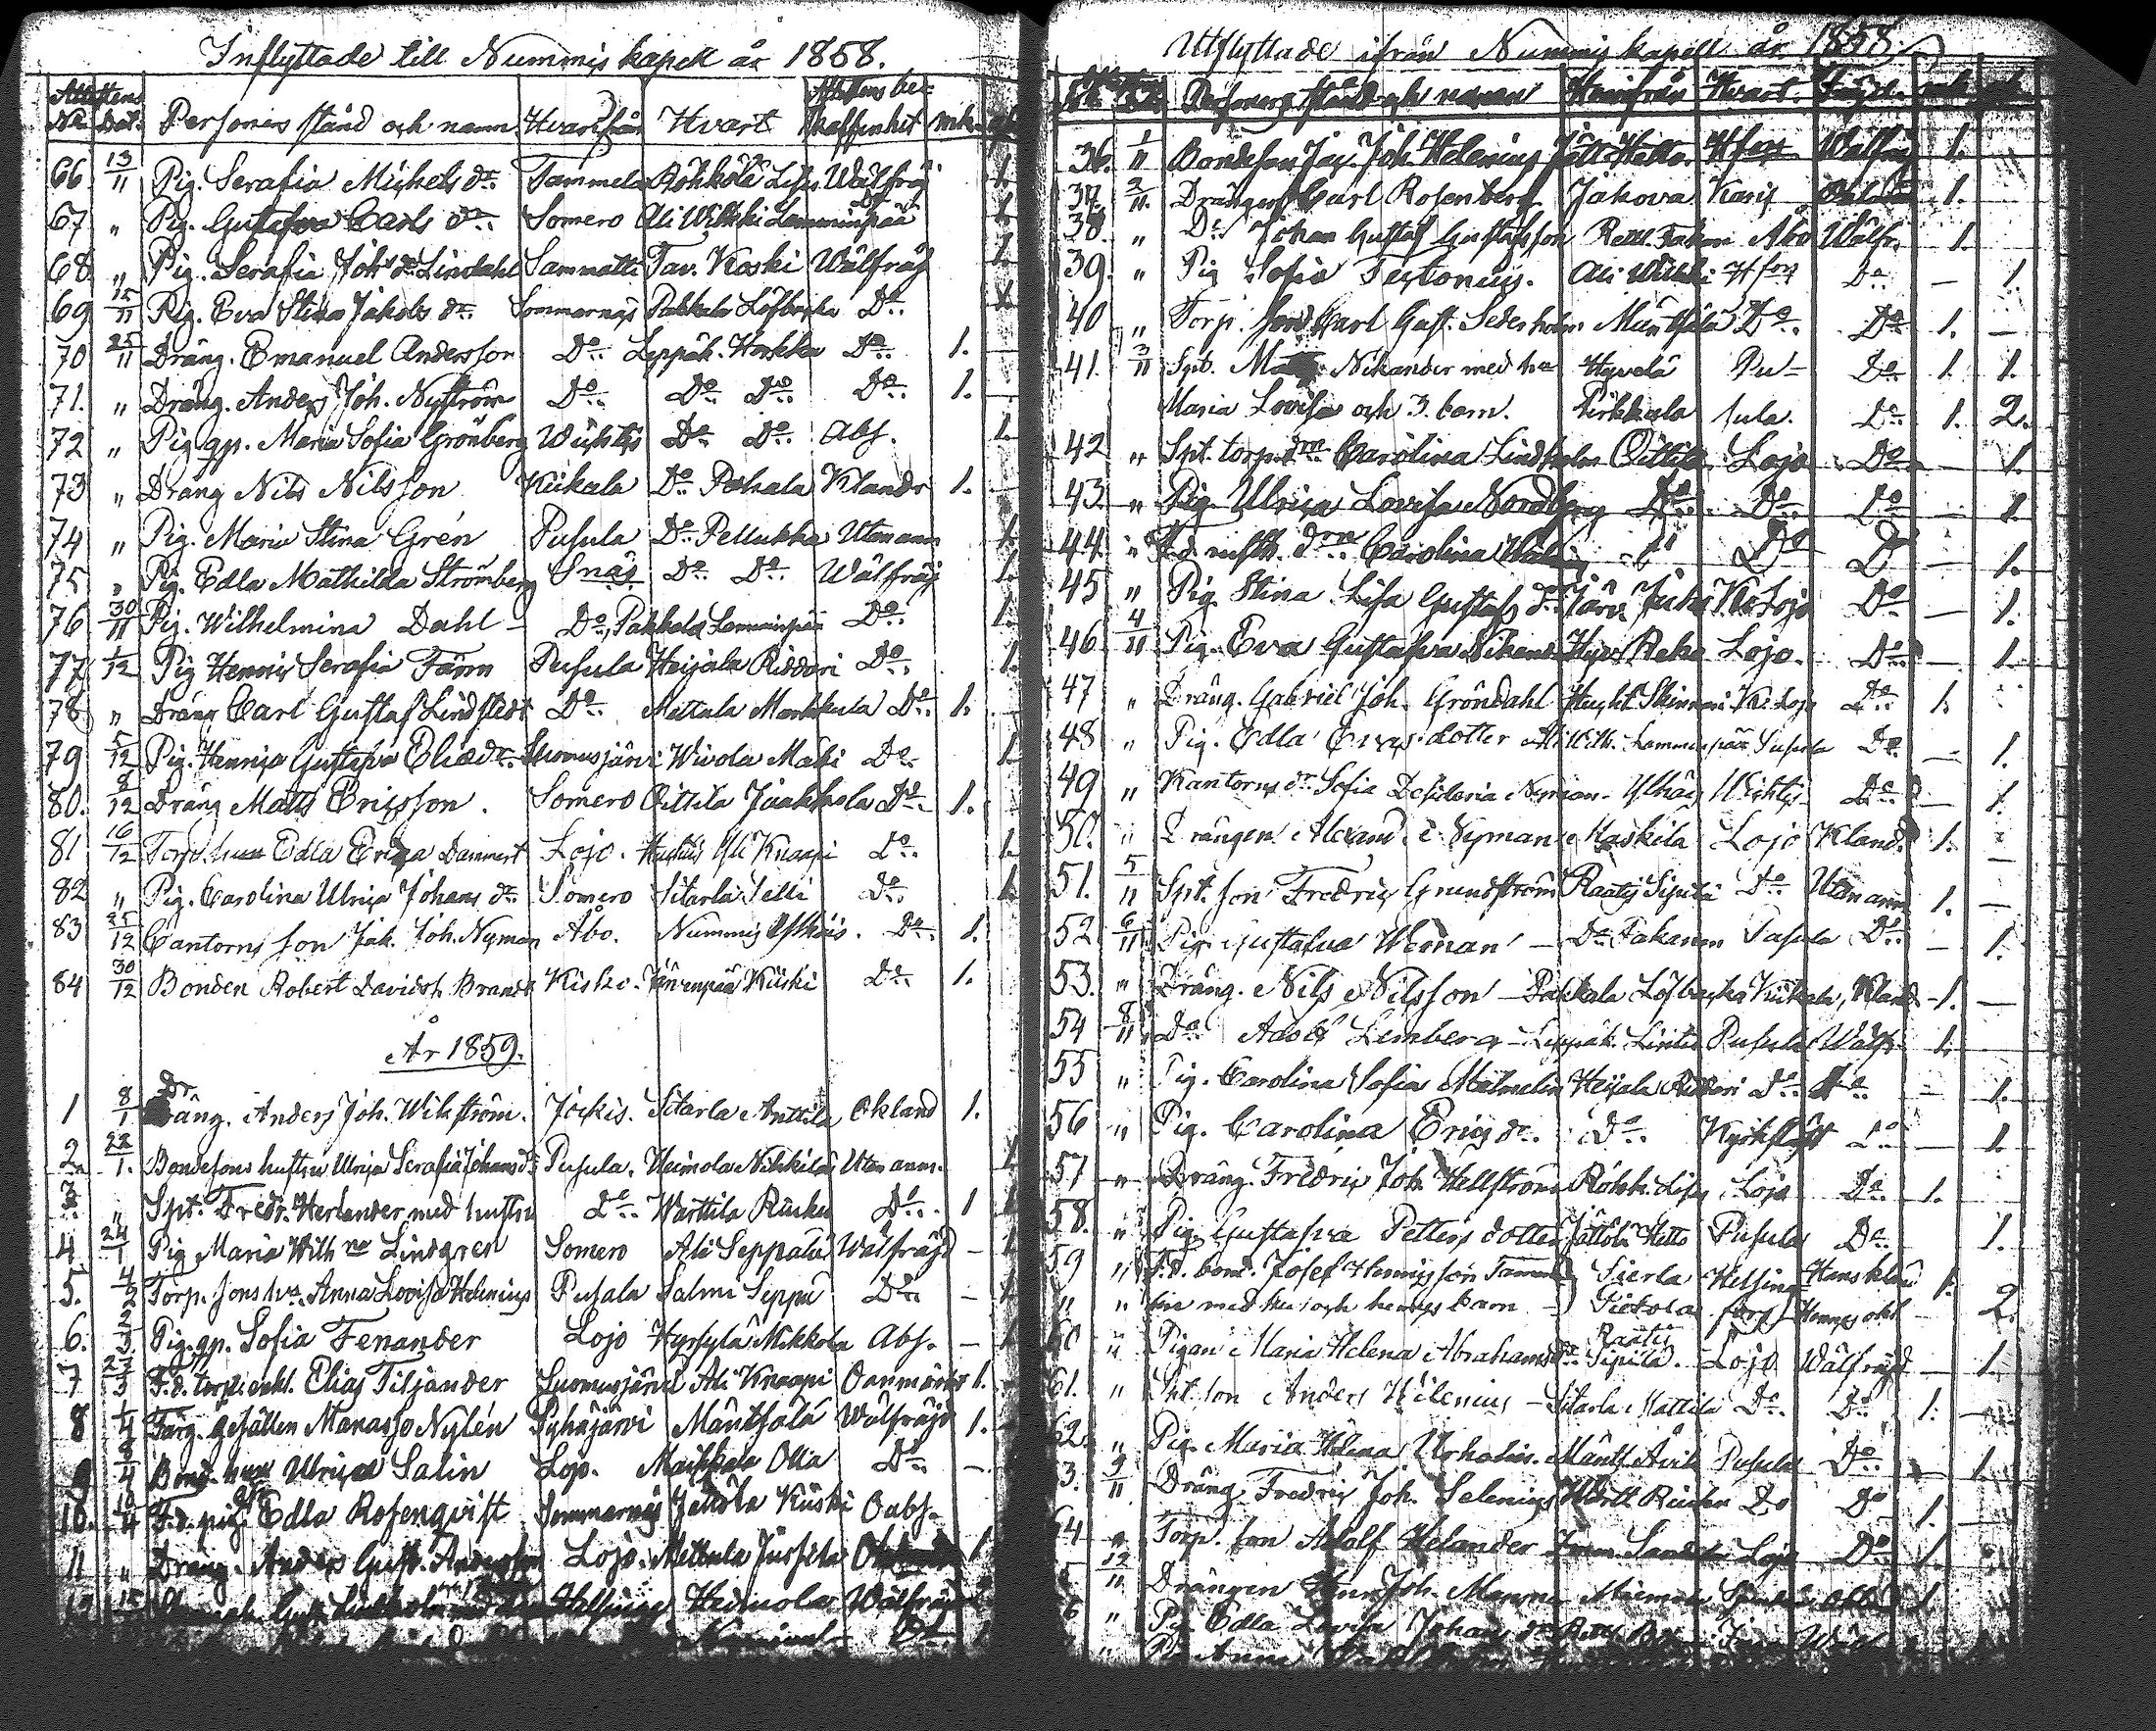 Inflyttade till Nummis kapell år 1858.
Attestens
No Dat. Personers stånd och namn Hvarifrån Hvart Attestens beskaffenhet mk. qk.
66 13/11 Pig. Serafia Michels dr. Tammela Röhkölä Lisis Wälfräjd 1.
67 " Pig. Gustafva Carls dr. Somero Ali Wikski Lamminpää Do 1.
68 " Pig. Serafia Joh. dr. Lindahl Sammatti Tav. Koski Wälfräjd 1.
69 15/11 Pig. Eva Stina Jakobs dr. Sommarnäs Pakkala Löfbacka Do. 1.
70 25/11 Dräng. Emanuel Andersson Do. Leppäk. Do. 1. —
71. " Dräng. Anders Joh. Nyström Do. Do. Do. Do. 1. —
72 " Pig. gp. Maria Sofia Grönberg Wichtis Do. Do. Abs. 1.
73 " Dräng Nils Nilsson Kiikala Do. Pohala Klandr 1. —
74 " Pig. Maria Stina Grén Pusula Do. Pellukka Utan anm 1.
75 " Pig. Edla Mathilda Strömberg Snäs Do. Do. Wälfräj 1.
76 30/11 Pig. Wilhelmina Dahl — Do. Pakkala Lamminpää Do. 1.
77 1/12 Pig Hennis Serafia Färm Pusula Heijala Riddari Do. 1.
78 " Dräng Carl Gustaf Lindstedt Do. Mettala Markkula Do. 1.
79 5/12 Pig. Henrica Gustafva Eliædr. Suomusjärvi Wivola Mäki Do. 1.
80. 8/12 Dräng Matts Ericsson. Somero Oittila Jaakkola Do. 1.
81 16/12 Torp. hust Edla Erica Dammert Lojo. Huhtis Yli Knaapi Do. 1.
82 " Pig. Carolina Ulrica Johans dr. Somero Sitarla Selli Do. 1.
83 25/12 Cantorns son Jak. Joh. Nyman Åbo. Nummis Ylhäis. Do. 1.
84 30/12 Bonden Robert Davidss. Brandt Kisko. Kärenpää Kiiski Do. 1.
År 1859.
1 8/1 Dräng. Anders Joh. Wikström. Jockis. Sitarla Anttila Okland 1.
2. 22/1. Bondesons hustru Ulrica Serafia Johansdr. Pusula. Heimola Nikkilä Utan anm. 1
3 " Spt. Fredr. Herlander med hustru Do. Warttila Do. 1 1
4 24/1 Pig Maria Wilh.na Lindgren Somero Ali Seppälä Wälfräjd — 1.
5. 4/2 Torp. sons hu. Anna Lovisa Helenius Pusala Salmi Seppä Do. — 1
6. 2/3 Pig. gp. Sofia Fenander Lojo Hyrsylä Mikkola Abs. — 1
7 22/3 F.d. torp. Elias Tiljander Suomusjärvi Ali Knaapi Oanmärkt 1.
8 1/4 Färg. gesällen Manasse Nylén Pyhäjärvi Mäntsälä Wälfräjd 1.
9 8/4 Bond. hust Ulrica Salin Lojo. Maikkala Olla Do. —
10. 10/4 F.d. pig. Edla Rosenqvist Sommarnäs Jättölä Kiiski Oabs.
11 " Dräng. Anders Gust. Andersson Lojo. Mettula Jussila 1
15 Helsinge Heimola Wälfräjd

Utflyttade ifrån Nummis kapell år 1858.
Personers stånd och namn Hvarifrån Hvart
36. 1/11 Bondeson Jac. Joh. Helenius Jätt. Hatta Hfors Wälfräj 1.
37. 2/11. Drängen Carl Rosenberg Jakova Karis 1.
38. " Do. Johan Gustaf Gustafsson Åbo Wälfr. 1.
39. " Pig Sofia Ali Wikki Hfors Do — 1.
40 " Torp. son Carl Gust. Sederholm Mäntsälä Do. Do 1. —
41. 3/11 Spt. Nikander med hu Hyvelä Pu- Do 1. 1.
Maria Lovisa och 3. barn. Pirkkala sula. Do 1. 2.
42 " Spt. torp. drn Carolina Lindholm Oittila Lojo Do — 1.
43. " Pig. Ulrica Lovisa Nordberg Do Do. Do — 1.
44. " F.d. drn Carolina Do Do D — 1.
45 " Pig. Stina Lisa Gustafs dr. Järv. K. Lojo Do — 1.
46 4/11 Pig. Eva Gustafva Hyrs Reko Lojo. Do. — 1.
47 " Dräng. Gabriel Joh. Gröndahl Huhti Skinnari K. Lojo Do 1.
48 " Pig. Edla Evas dotter Ali Wik. Lamminpää Pusula Do. — 1.
49 " Kantorns dr. Sofia Desideria Nyman. Ylhäis Wichtis Do. — 1.
50. " Drängen Alexand. Nyman Maskila Lojo Kland. 1. —
51. 5/11 Spt. son Fredric Grundström Raatis Sipilä Do Utan anm 1. —
52 6/11 Pig. Gustafva Weman — Do Takanen Pusula Do. — 1.
53. " Dräng. Nils Nilsson — Pakkala Löfbacka Kiikala, Kland. 1. —
54 8/11 Do Adolf Lemberg — Leppäk. Pusula Wälfr. 1.
55 " Pig. Carolina Sofia Malmelin Heijala Riddari Do. Do. — 1.
56 " Pig. Carolina Erics dr. Do. Kyrkslätt Do — 1.
57 " Dräng. Fredric Joh. Hellström Röhk. Lisis Lojo Do. 1.
58. " Pig. Gustafva Petters dotter Jättölä Hatta Pusula Do. 1.
59 " F.d. bond. Josef Henricsson Sierla Helsing- Hans kland 1.
" " med hu och hennes barn Siekola fors Hennes okl — 2.
60 " Pigan Maria Helena Abrahamsdr. Raatis Sipilä. Lojo Wälfräjd — 1.
61. " Spt. son Anders Helenius — Sitarla Mattila Do. Do 1. —
62. " Pig. Maria Helena Mäntt. Pusula Do — 1.
3. 9/11 Dräng Fredric Joh. Selenius Wärtt. Do Do 1. —
64 " Torp. son Adolf Helander Lojo Do 1.
12/11 Drängen Joh. 1
6 " Pig. Edla Lovisa Johans dr.